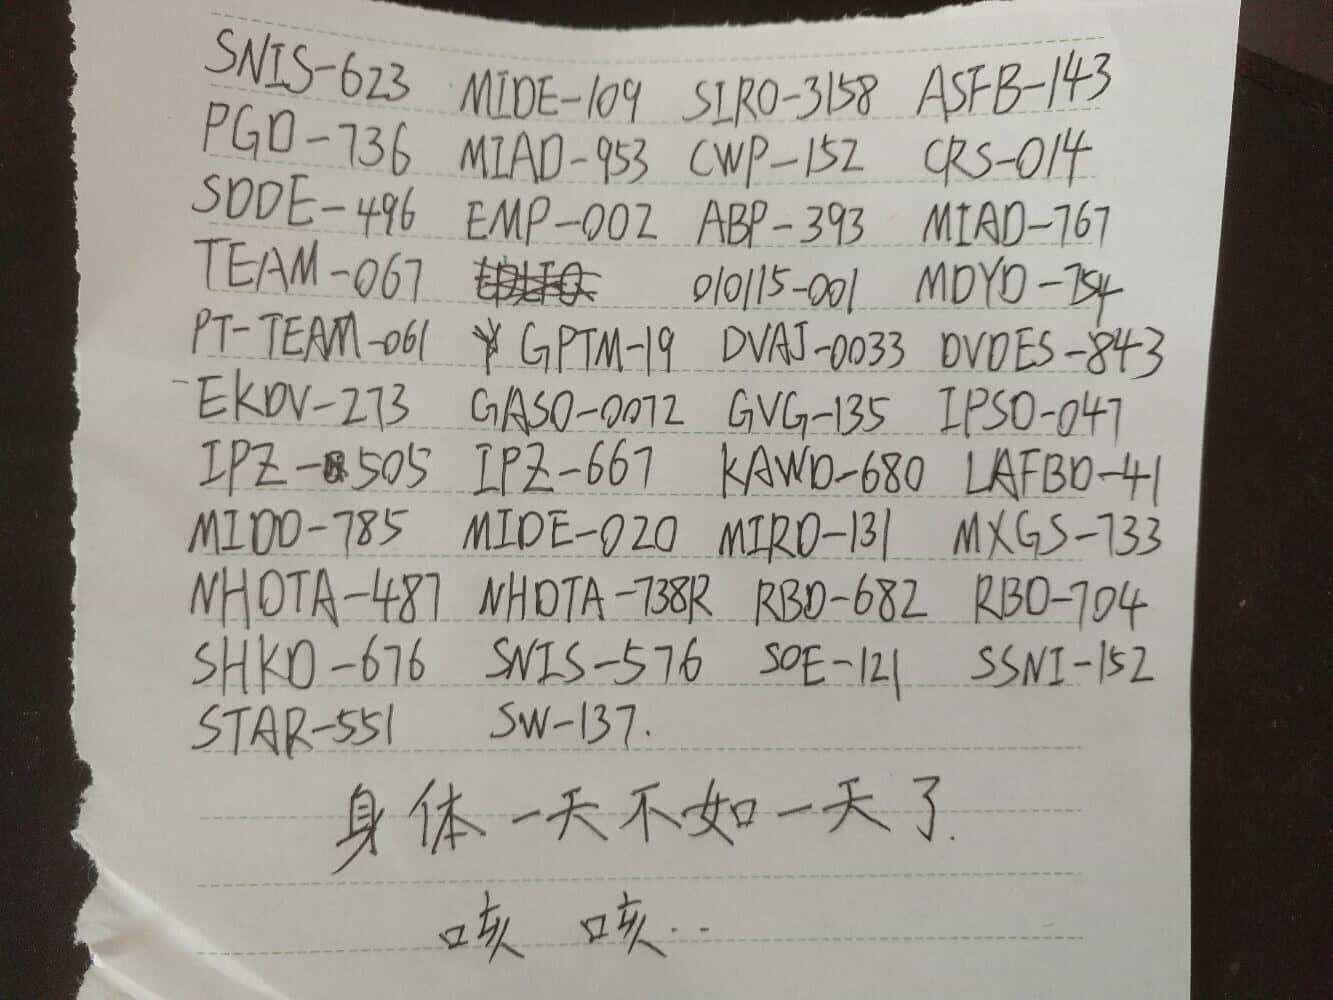 SNIS-623 MIDE-109 SIRO-3158 ASFB-143
PGD-736 MIAD-953 CWP-152 CRS-014
SDDE-496 EMP-002 ABP-393 MIAD-767
TEAM-067 010115-001 MDYD-754
PT-TEAM-061 GPTM-19 DVAJ-0033 DVDES-843
EKDV-273 GASO-0072 GVG-135 IPSD-047
IPZ-505 IPZ-667 KAWD-680 LAFBD-41
MIDD-785 MIDE-020 MIRD-131 MXGS-733
NHDTA-487 NHDTA-738R RBD-682 RBD-704
SHKD-676 SNIS-576 SOE-121 SSNI-152
STAR-551 SW-137.
身体一天不如一天了.
咳 咳..